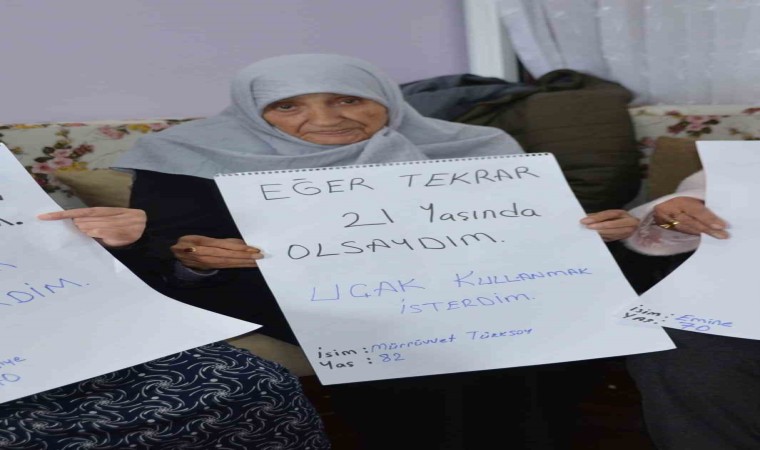 M.
RDİM.
ye
0
EĞER TEKRAR
21 Yaşında
OLSAYDIM.
UÇAK KULLANMAK
İSTERDİM.
isim : Mürüvvet Türksoy
Yaş : 82
isim : Emine
Yaş : 70